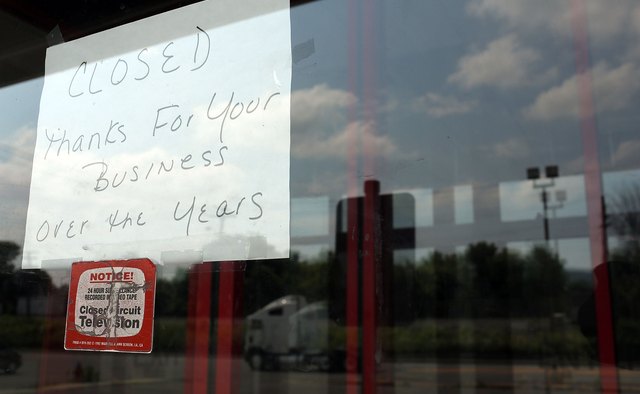 CLOSED
thanks For Your
Business
over the Years
NOTICE!
24 HOUR
RECORDED TAPE
Closed Circuit
Television